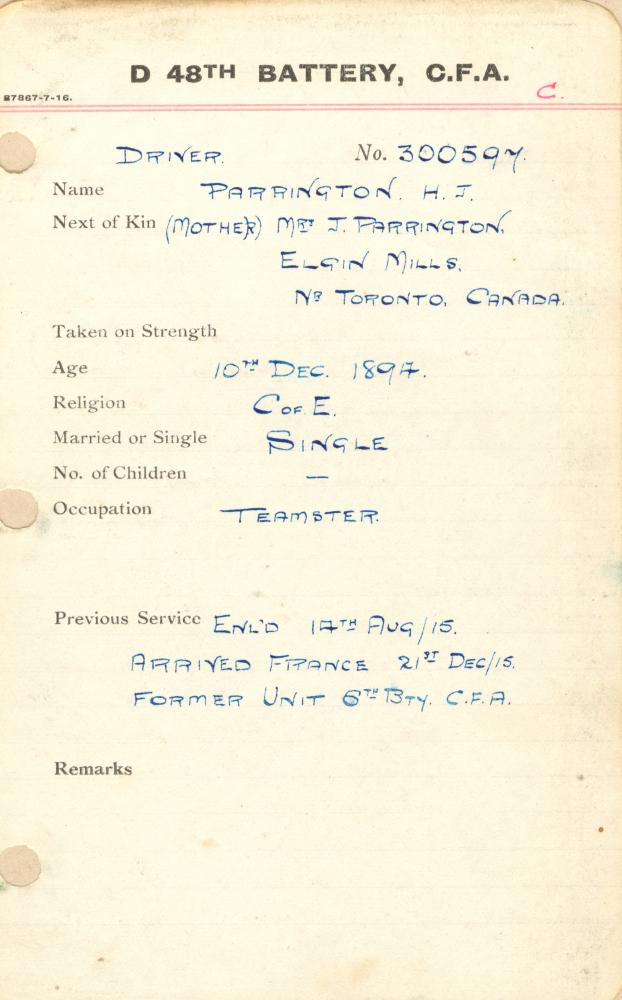 D 48TH BATTERY, C.F.A.
87867-7-16.
C.
DRIVER. No. 300597.
Name PARRINGTON. H. J.
Next of Kin (MOTHER) MRS J. PARRINGTON,
ELGIN MILLS,
NR TORONTO, CANADA.
Taken on Strength
Age 10TH DEC. 1894.
Religion C OF E.
Married or Single SINGLE
No. of Children —
Occupation TEAMSTER.
Previous Service ENL'D 14TH AUG/15.
ARRIVED FRANCE 21ST DEC/15.
FORMER UNIT 6TH BTY. C.F.A.
Remarks